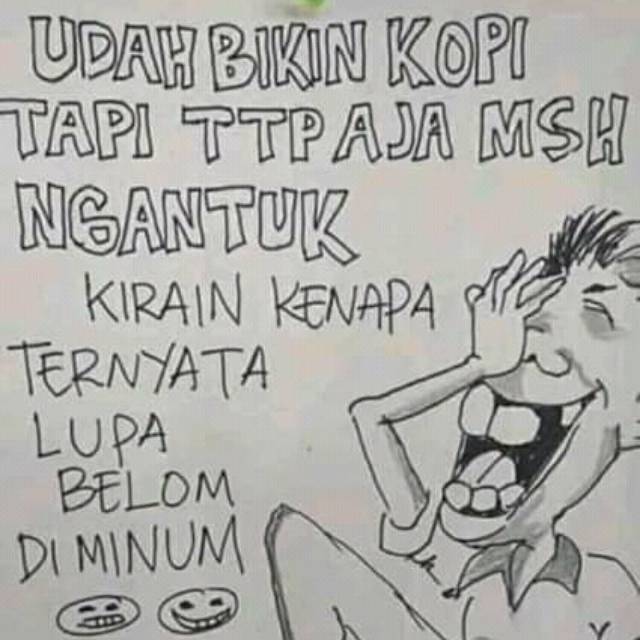 UDAH BIKIN KOPI
TAPI TTP AJA MSH
NGANTUK
KIRAIN KENAPA
TERNYATA
LUPA
BELOM
DI MINUM